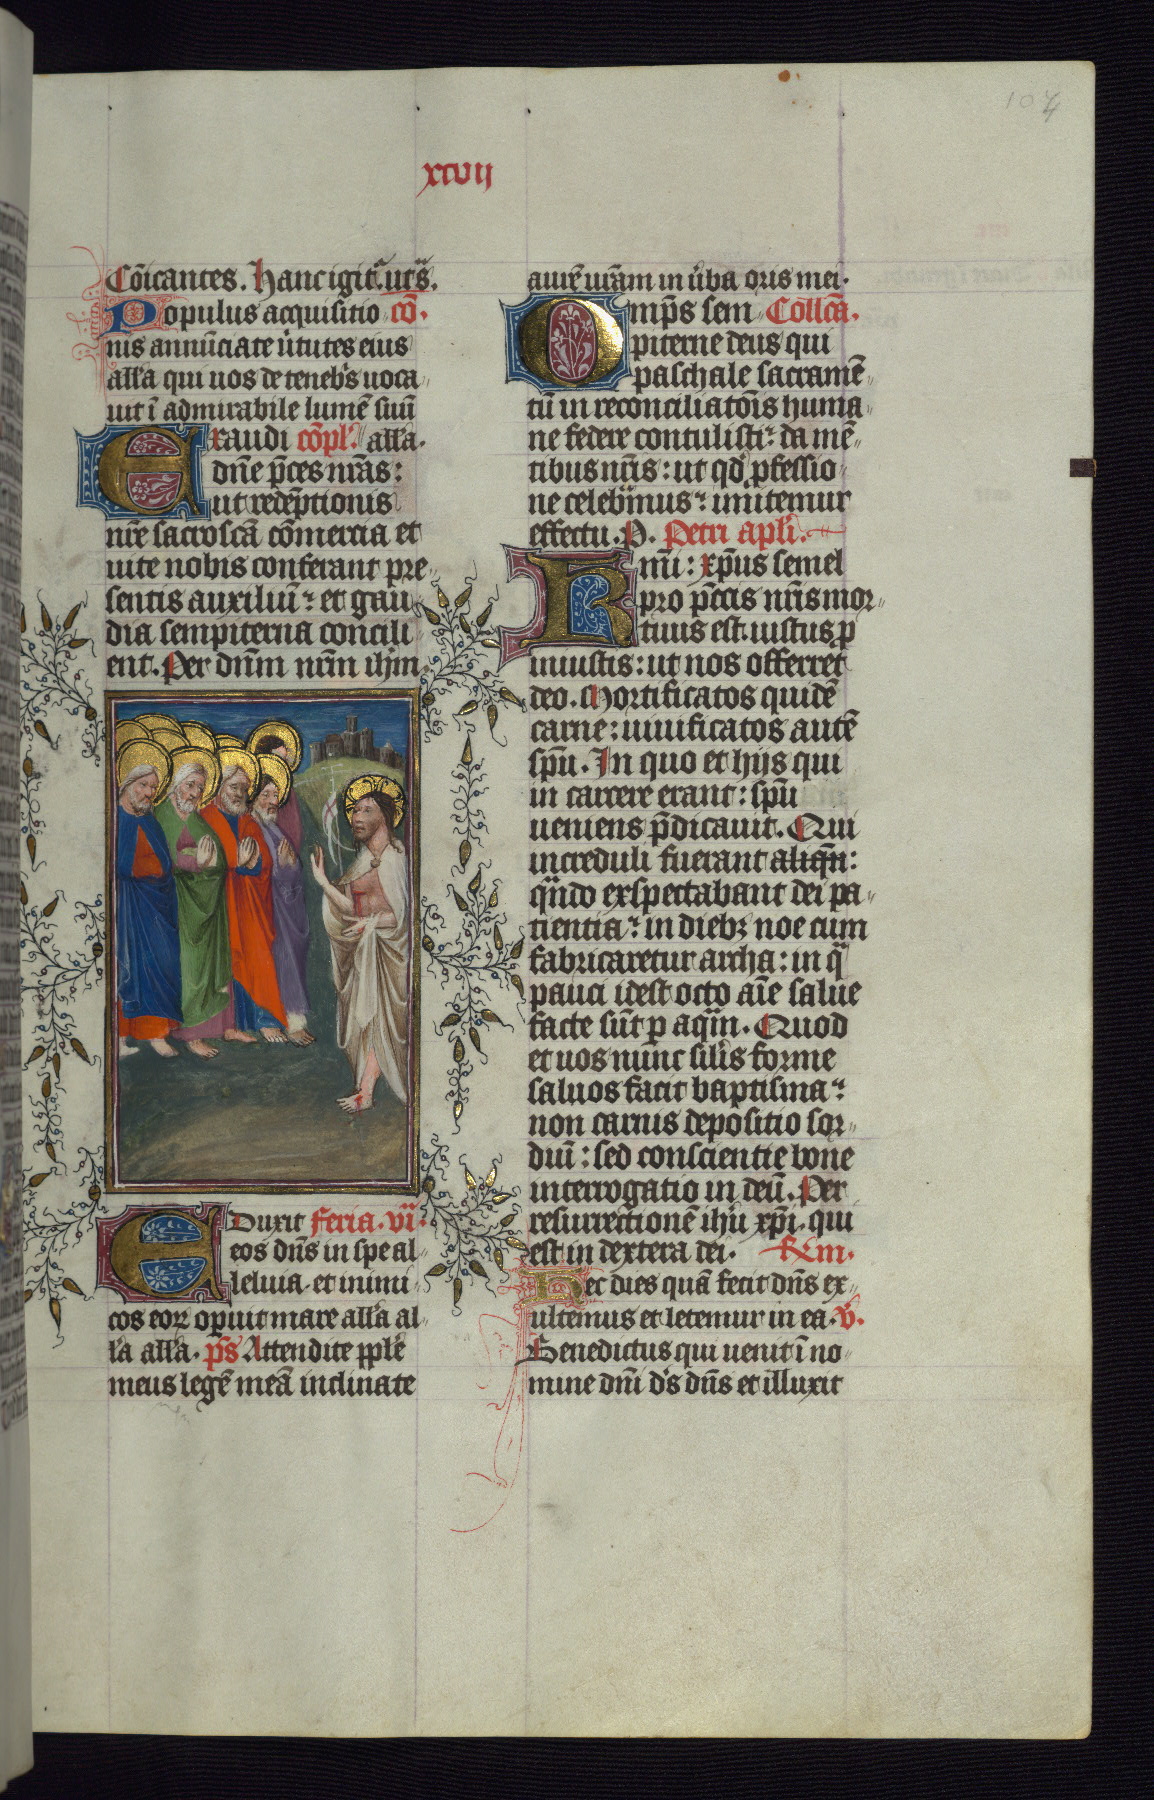 104
xcvii
Cōicantes. Hanc igitᷓ. ut sᷓ.
Populus acquisitio cō.
nis annūciate ùtutes eius
alła qui uos de tenebˢ uoca
uit ī admirabile lumē suū
Exaudi cōpł. alła.
dn̄e p̄ces nr̄as:
ut redēptionis
nr̄e sacroscā cōmercia et
uite nobis conferant pre
sentis auxiliū: et gau
dia sempiterna concili
ent. Per dnm̄ nr̄m ihm̄
Eduxit Feria. vi.
eos dn̄s in spe al
leluia. et inimi
cos eoꝝ opuit mare alła al
ła alła. ps̄ Attendite pp̄le
meus legē meā inclinate
aurē ur̄am in ùba oris mei.
Omp̄s sem Collcā.
piterne deus qui
paschale sacramē
tū in reconciliatōis huma
ne federe contulisti: da mē
tibus nr̄is: ut qd̓ ꝓfessio
ne celebᷓmus: imitemur
effectu. P. Petri apłi.
Kmi: xp̄us semel
pro pc̄cis nr̄is mor
tuus est. iustus p̱
iniustis: ut nos offerret
deo. Mortificatos quidē
carne: uiuificatos autē
spū. In quo et hijs qui
in carcere erant: spū
ueniens p̄dicauit. Qui
increduli fuerant aliqn̄:
qn̄do exspectabant dei pa
tientiā: in diebꝫ noe cum
fabricaretur archa: in qᷓ
pauci idest octo aīe salue
facte sūt ꝑ aquam. Quod
et uos nunc silis forme
saluos facit baptisma:
non carnis depositio sor
diū: sed conscientie bone
interrogatio in deū. Per
resurrectionē ihū xpī. qui
est in dextera dei.
Hec dies quā fecit dn̄s ex
ultemus et letemur in eā. v̄.
Benedictus qui uenit ī no
mine dn̄i d̓s dn̄s et illuxit